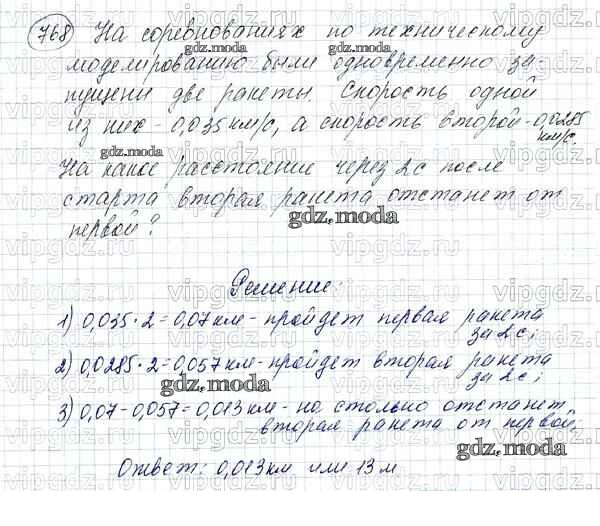 768 На соревнованиях по техническому
моделированию были одновременно за-
пущены две ракеты. Скорость одной
из них - 0,035 км/с, а скорость второй - 0,0285
км/с.
На какое расстояние через 2 с после
старта вторая ракета отстанет от
первой?
Решение:
1) 0,035 · 2 = 0,07 км - пройдет первая ракета
за 2 с;
2) 0,0285 · 2 = 0,057 км - пройдет вторая ракета
за 2 с;
3) 0,07 - 0,057 = 0,013 км - на столько отстанет
вторая ракета от первой.
Ответ: 0,013 км или 13 м
gdz.moda
vipgdz.ru